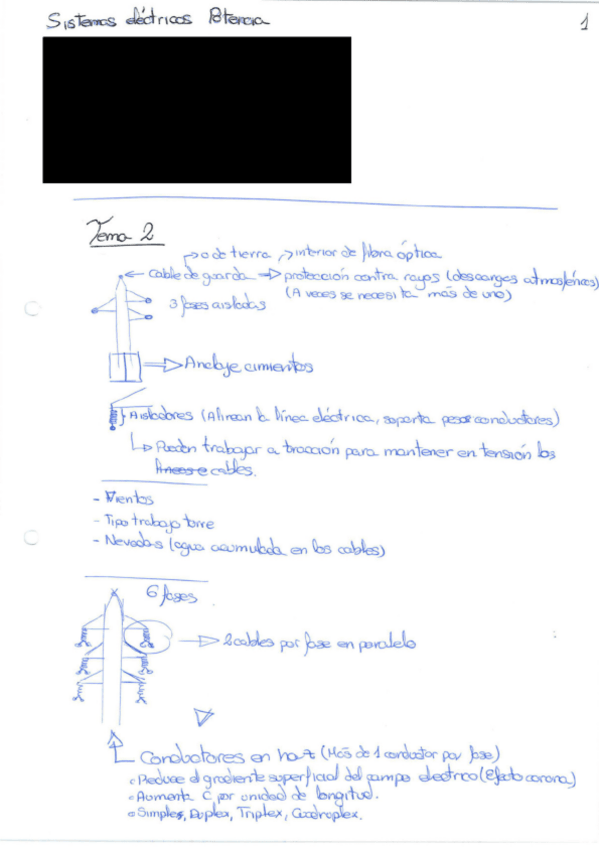 Sistemas eléctricos Potencia
1
Tema 2
o de tierra, interior de fibra óptica
cable de guarda protección contra rayos (descargas atmosféricas)
(A veces se necesita más de uno)
3 fases aisladas
Anclaje cimientos
Aisladores (Alinean la línea eléctrica, soporta peso conductores)
Pueden trabajar a tracción para mantener en tensión los
cables.
- Vientos
- Tipo trabajo torre
- Nevadas (agua acumulada en los cables)
6 fases
2 cables por fase en paralelo
Conductores en haz (Más de 1 conductor por fase)
Reduce el gradiente superficial del campo electrico (efecto corona)
Aumenta C por unidad de longitud.
Simplex, Duplex, Triplex, Cuadruplex.